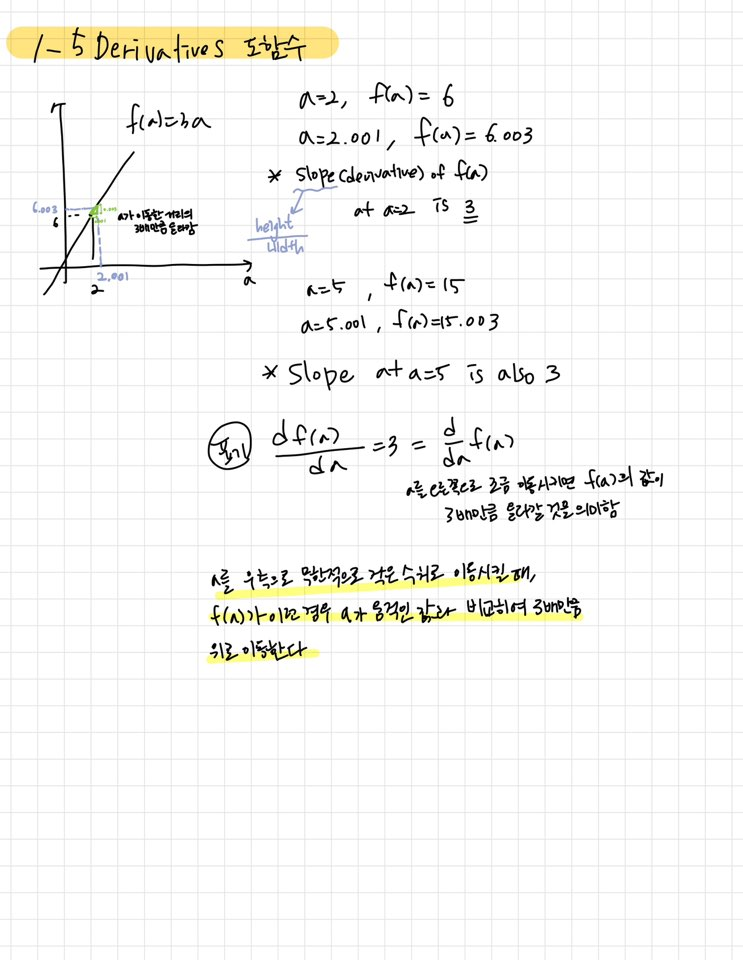 1-5 Derivatives 도함수
f(a)=3a
a=2, f(a)=6
a=2.001, f(a)=6.003
* Slope(derivative) of f(a)
at a=2 is 3
height
width
6.003
6
a가 이동한 거리의
3배만큼 올라감
2.001
2
a
a=5, f(a)=15
a=5.001, f(a)=15.003
* Slope at a=5 is also 3
표기 df(a)/da = 3 = d/da f(a)
a를 오른쪽으로 조금 이동시키면 f(a)의 값이
3배만큼 올라갈 것을 의미함
a를 우측으로 극한적으로 작은 수치로 이동시킬 때,
f(a)가 이런 경우 a가 움직인 값과 비교하여 3배만큼
위로 이동한다